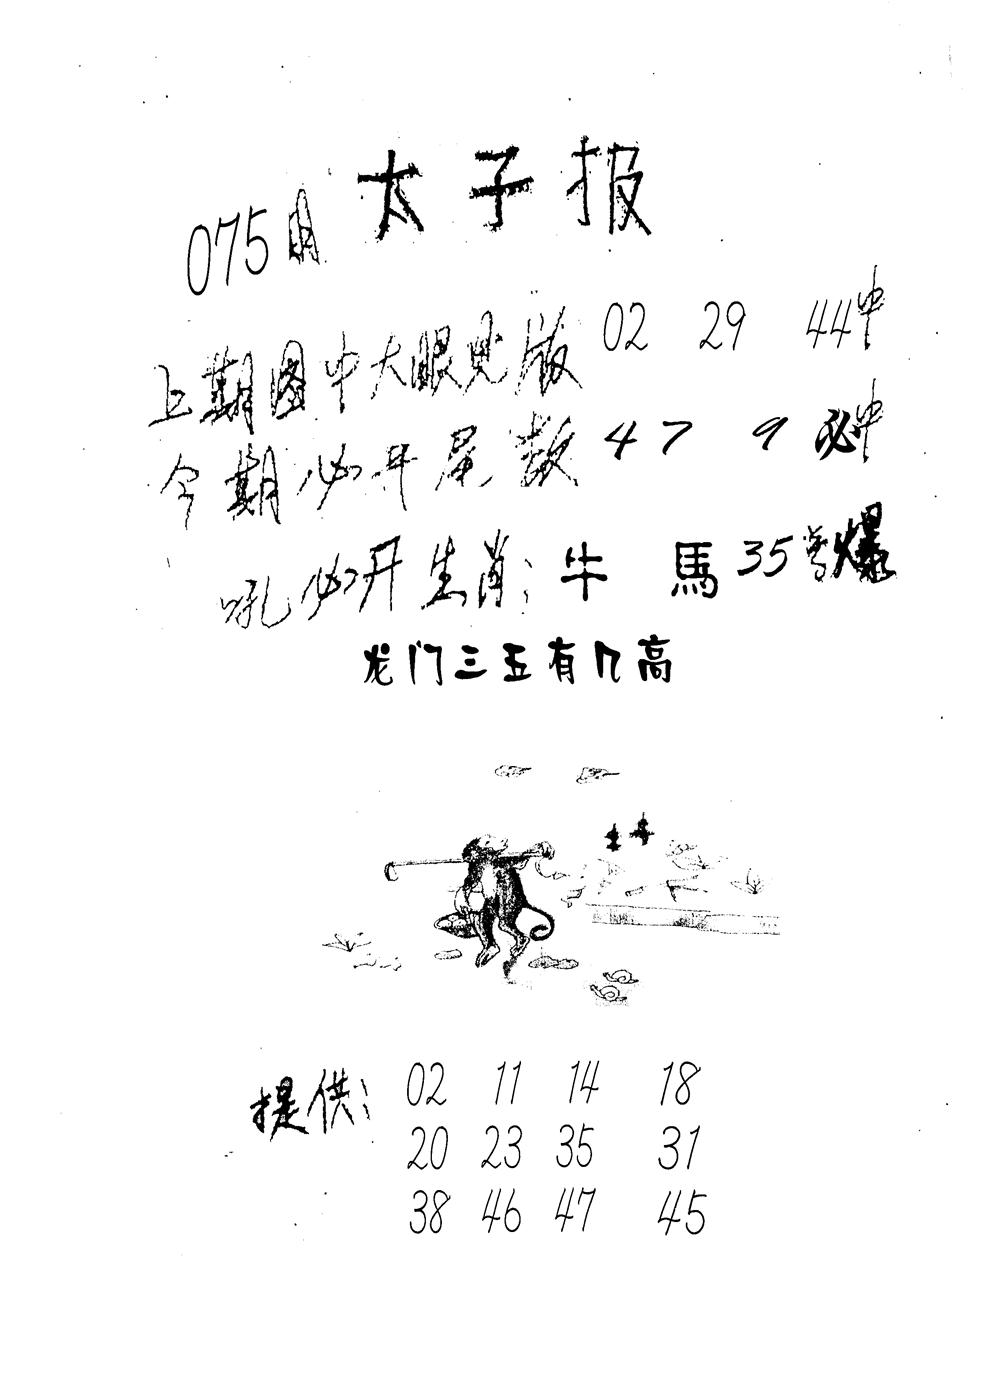 太子报
075期
上期图中大眼见版 02 29 44中
今期必开尾数 47 9 必中
吼必开生肖: 牛 馬 35号爆
龙门三五有几高
提供: 02 11 14 18
20 23 35 31
38 46 47 45